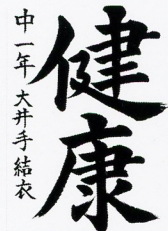 健康
中一年 大井手結衣